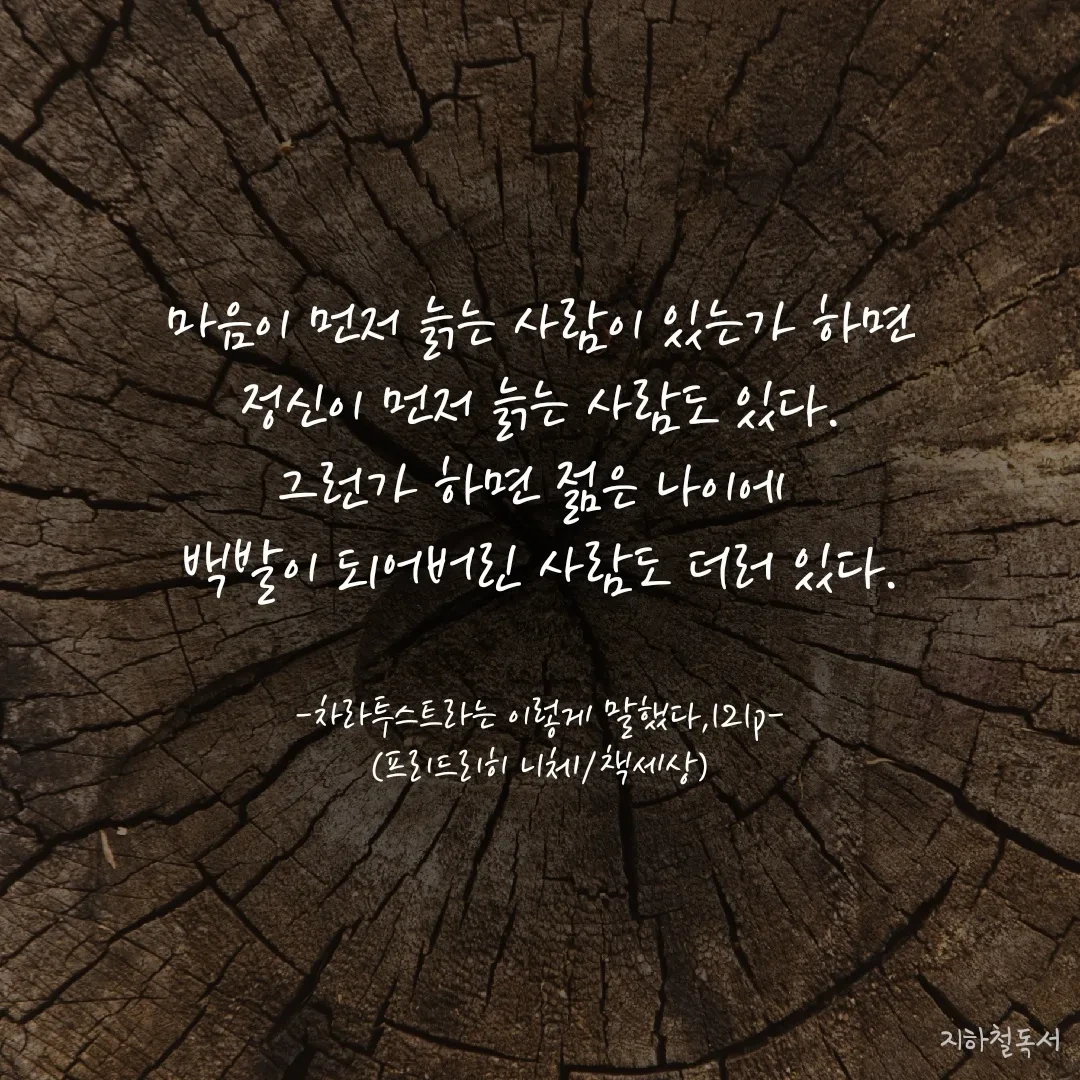 마음이 먼저 늙는 사람이 있는가 하면
정신이 먼저 늙는 사람도 있다.
그런가 하면 젊은 나이에
백발이 되어버린 사람도 더러 있다.
-차라투스트라는 이렇게 말했다,121p-
(프리드리히 니체/책세상)
지하철독서